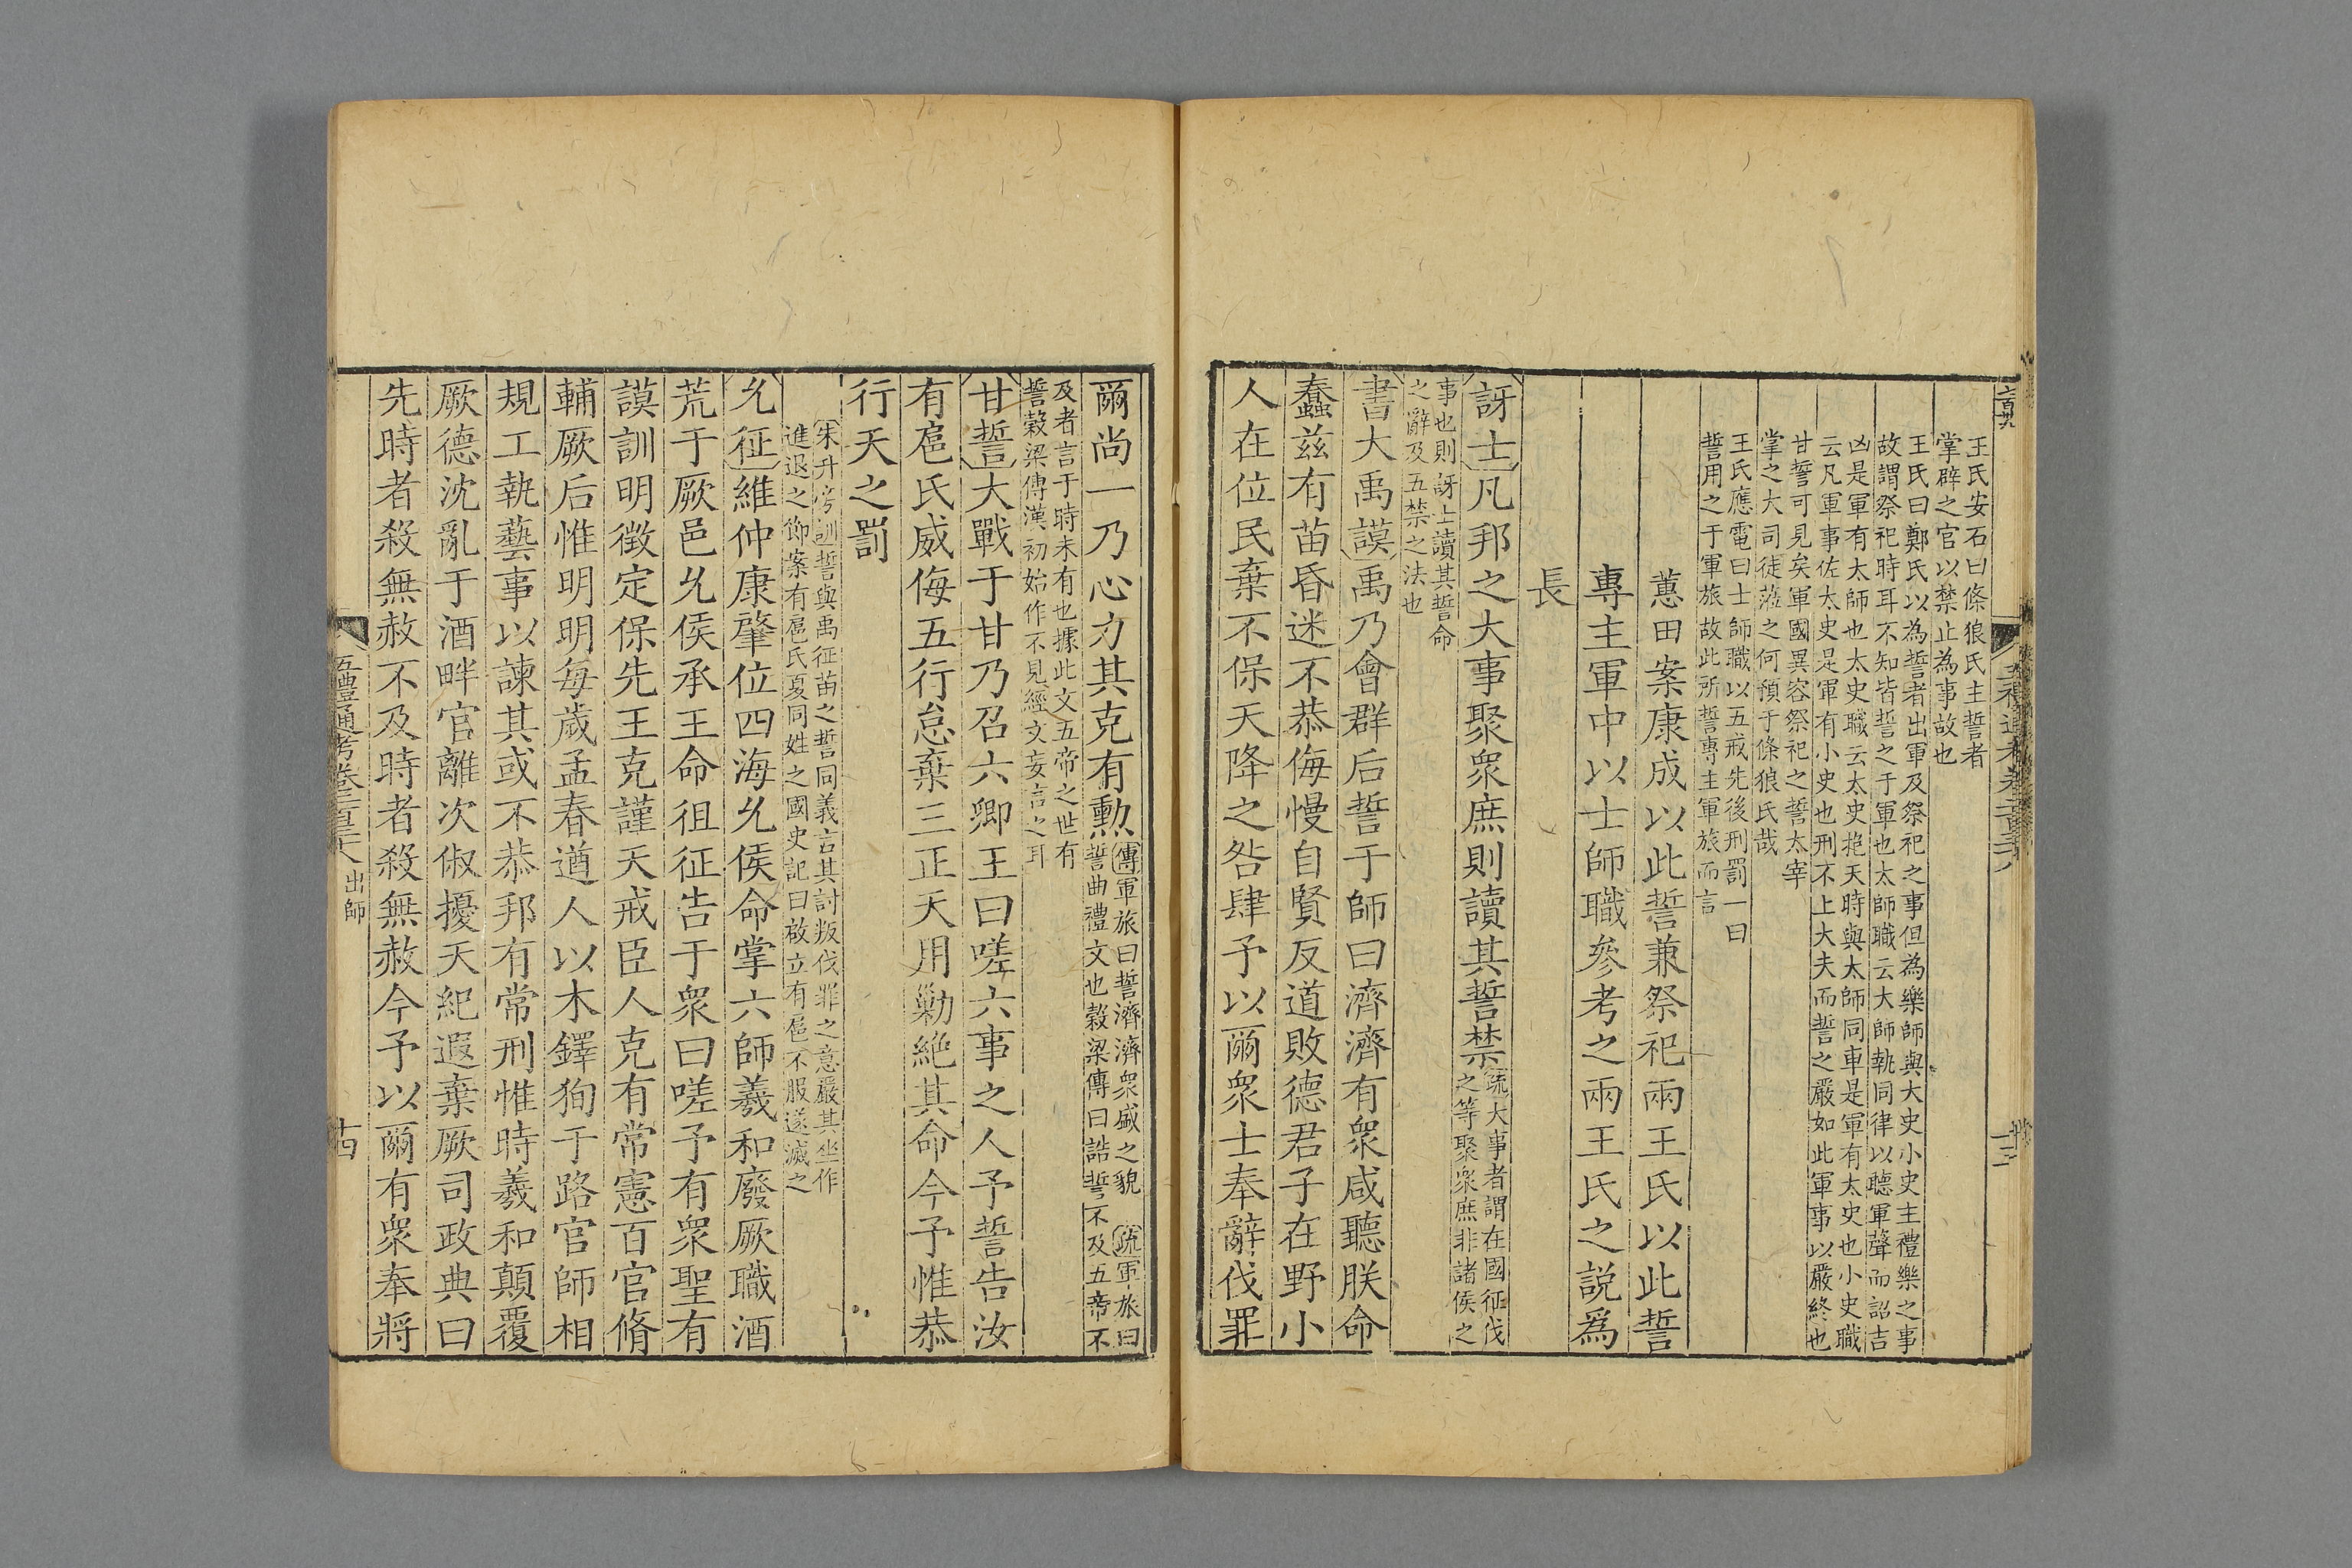 王氏安石曰條狼氏主誓者
掌辟之官以禁止為事故也
王氏曰鄭氏以為誓者出軍及祭祀之事但為樂師與大史小史主禮樂之事
故謂祭祀時耳不知皆誓之于軍也太師職云大師執同律以聽軍聲而詔吉
凶是軍有太師也太史職云太史抱天時與太師同車是軍有太史也小史職
云凡軍事佐太史是軍有小史也刑不上大夫而誓之嚴如此軍事以嚴終也
甘誓可見矣軍國異容祭祀之誓太宰
掌之大司徒涖之何預于條狼氏哉
王氏應電曰士師職以五戒先後刑罰一曰
誓用之于軍旅故此所誓專主軍旅而言
蕙田案康成以此誓兼祭祀兩王氏以此誓
專主軍中以士師職參考之兩王氏之説爲
長
訝士凡邦之大事聚衆庶則讀其誓禁
疏大事者謂在國征伐
之等聚衆庶非諸侯之
事也則訝士讀其誓命
之辭及五禁之法也
書大禹謨禹乃會群后誓于師曰濟濟有衆咸聽朕命
蠢兹有苗昏迷不恭侮慢自賢反道敗德君子在野小
人在位民棄不保天降之咎肆予以爾衆士奉辭伐罪
爾尚一乃心力其克有勲
傳軍旅曰誓濟濟衆盛之貌 疏軍旅曰
誓曲禮文也穀梁傳曰誥誓不及五帝不
及者言于時未有也據此文五帝之世有
誓穀梁傳漢初始作不見經文妄言之耳
甘誓大戰于甘乃召六卿王曰嗟六事之人予誓告汝
有扈氏威侮五行怠棄三正天用勦絶其命今予惟恭
行天之罰
朱升旁訓誓與禹征苗之誓同義言其討叛伐罪之意嚴其坐作
進退之節案有扈氏夏同姓之國史記曰啟立有扈不服遂滅之
允征維仲康肇位四海允侯命掌六師羲和廢厥職酒
荒于厥邑允侯承王命徂征告于衆曰嗟予有衆聖有
謨訓明徵定保先王克謹天戒臣人克有常憲百官脩
輔厥后惟明明每歲孟春遒人以木鐸狥于路官師相
規工執藝事以諫其或不恭邦有常刑惟時羲和顛覆
厥德沈亂于酒畔官離次俶擾天紀遐棄厥司政典曰
先時者殺無赦不及時者殺無赦今予以爾有衆奉將
五禮通考卷二百三十八 出師
十四